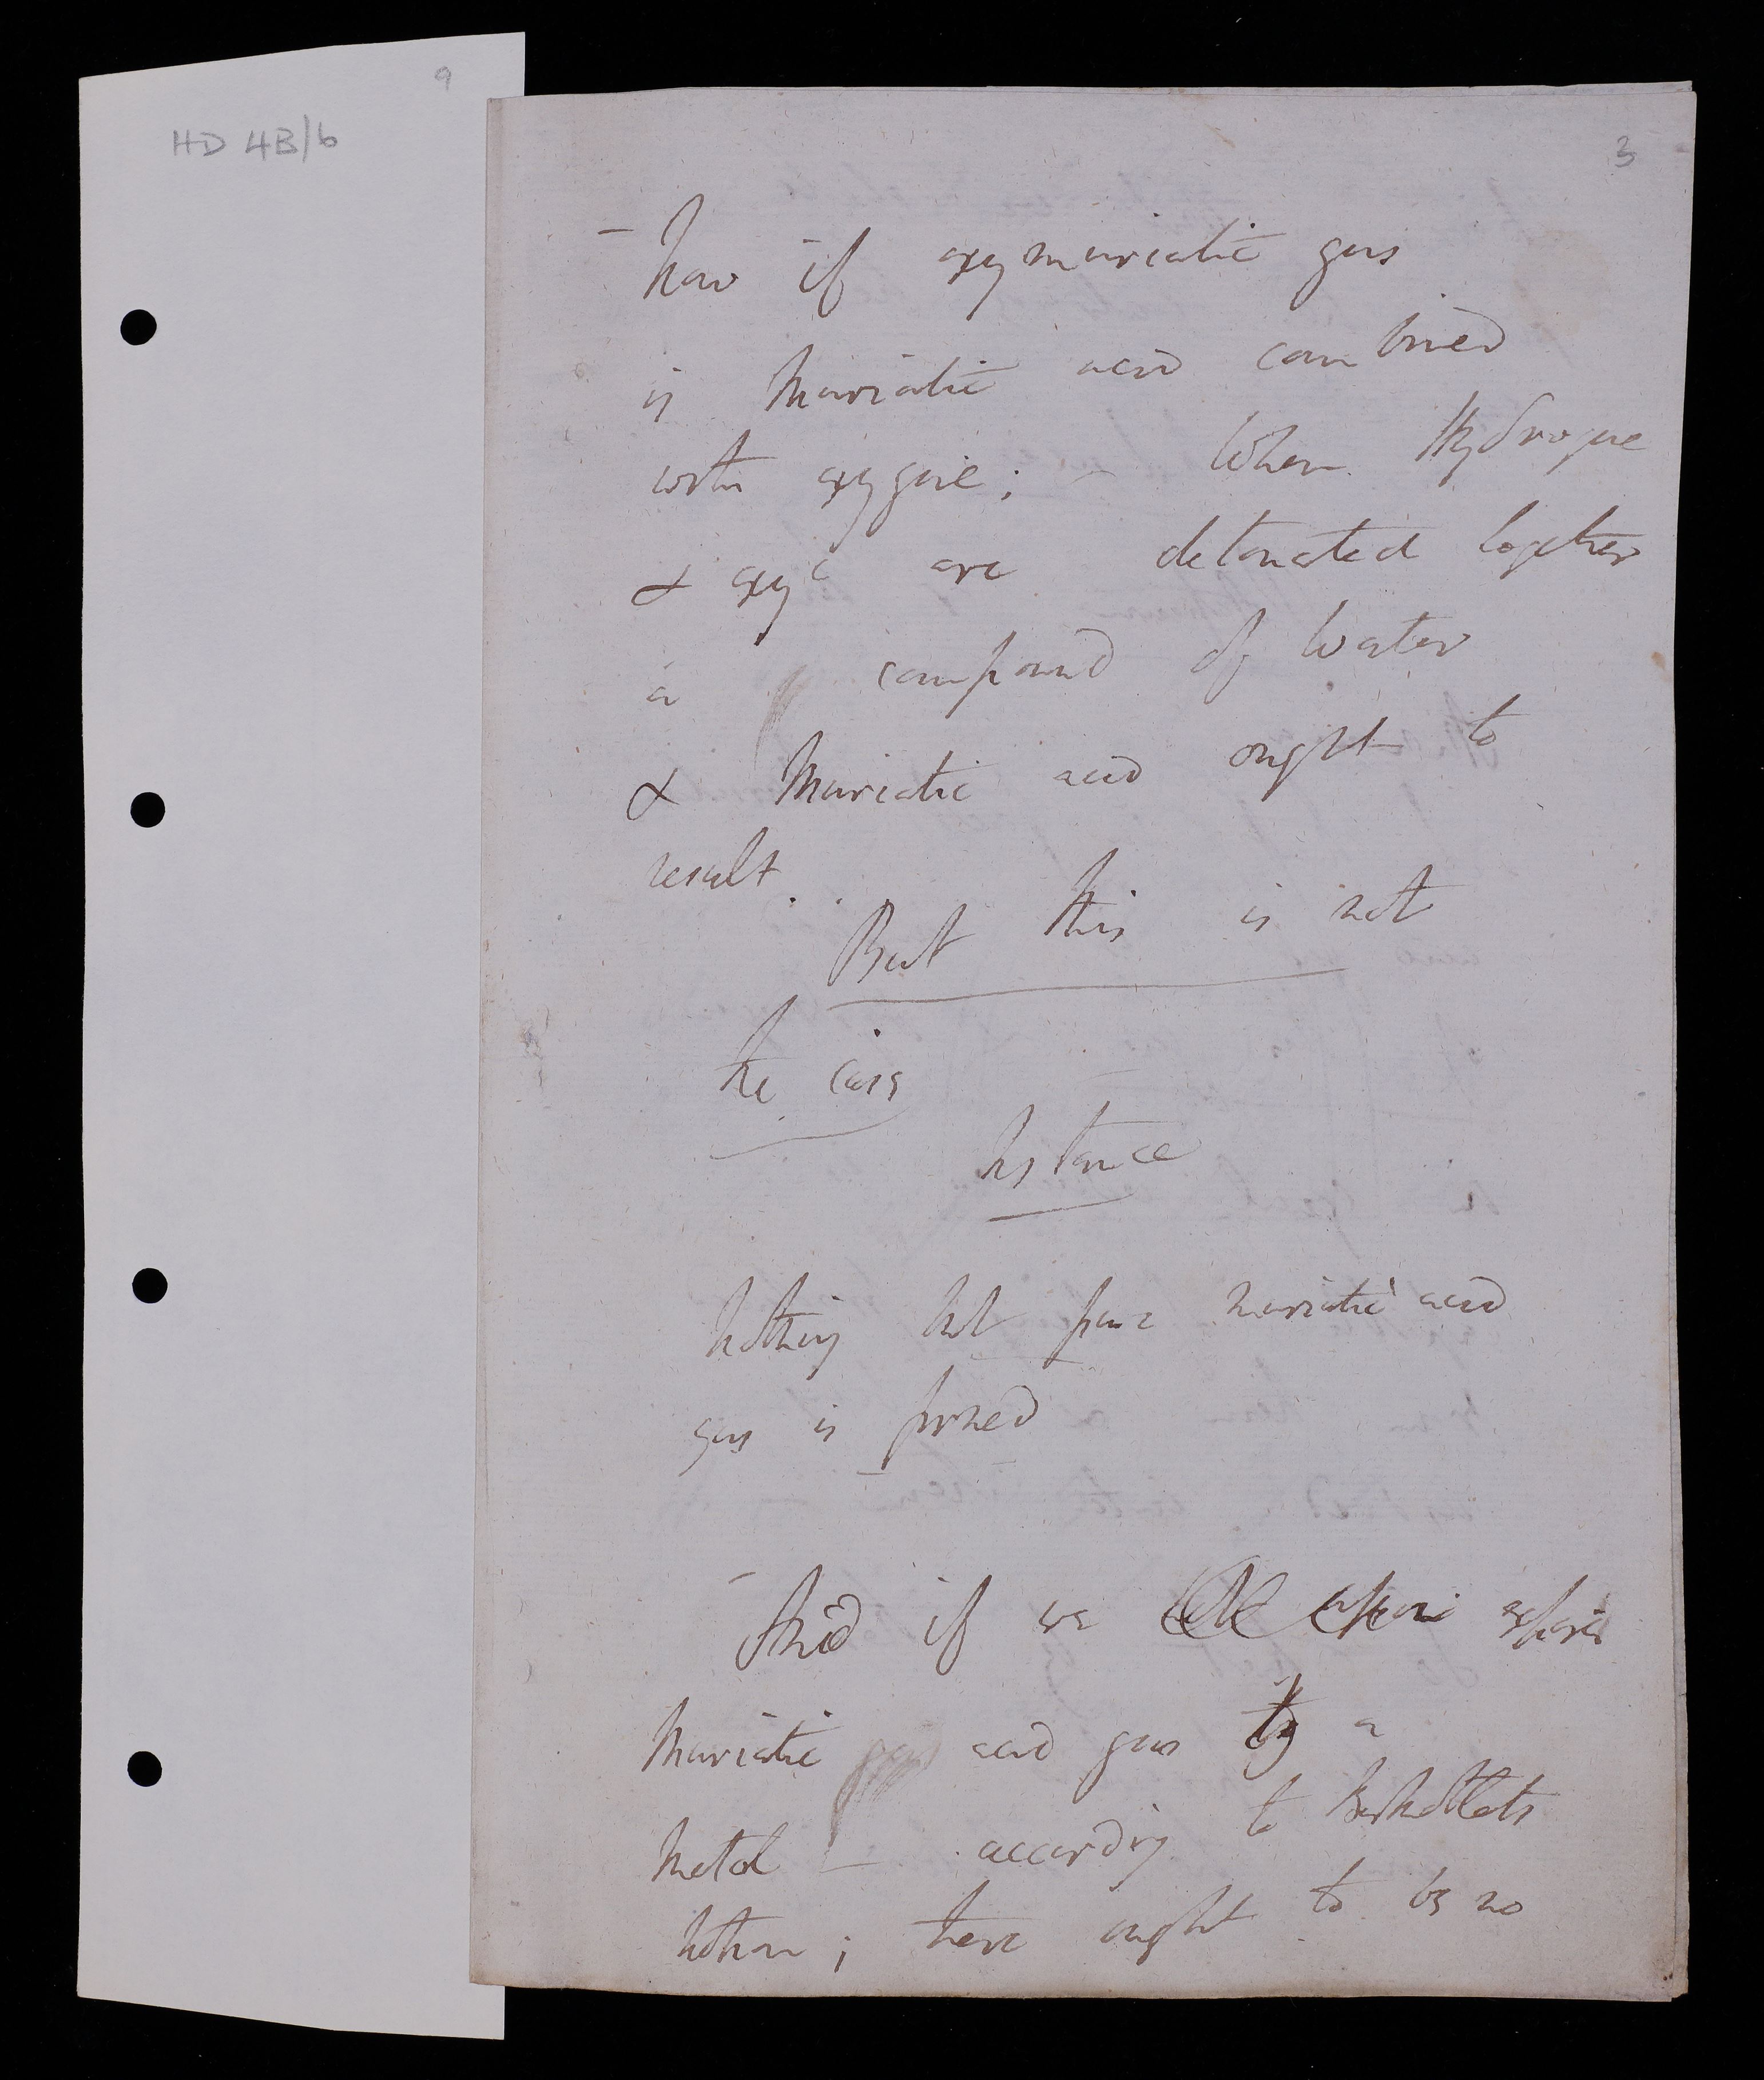 9
HD 4B/6
3
– Now if oxymuriatic gas
is Muriatic acid combined
with oxygene; – When Hydrogene
& oxyc are detonated together
a compound of Water
& Muriatic acid ought to
result.
But this is not
the case
Instance
Nothing but pure muriatic acid
gas is formed
– And if we
Muriatic acid gas by a
Metal – according to Berthollets
Notion; there ought to be no